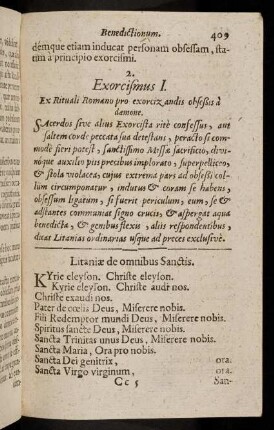 Benedictionum. 409
demque etiam inducat personam obsessam, sta-
tim à principio exorcismi.
2.
Exorcismus I.
Ex Rituali Romano pro exorcizandis obsessis à
dæmone.
SAcerdos sive alius Exorcista ritè confessus, aut
saltem corde peccata sua detestans, peracto si com-
modè fieri potest, sanctissimo Missæ sacrificio, divi-
nóque auxilio piis precibus implorato, superpelliceo,
& stola violacea; cujus extrema pars ad obsessi col-
lum circumponatur, indutus & coram se habens,
obsessum ligatum, si fuerit periculum, eum, se &
adstantes communiat signo crucis, & aspergat aqua
benedicta, & genibus flexis, aliis respondentibus,
dicat Litanias ordinarias usque ad preces exclusivè.
Litaniæ de omnibus Sanctis.
KYrie eleyson. Christe eleyson.
Kyrie eleyson. Christe audi nos.
Christe exaudi nos.
Pater de cœlis Deus, Miserere nobis.
Fili Redemptor mundi Deus, Miserere nobis.
Spiritus sancte Deus, Miserere nobis.
Sancta Trinitas unus Deus, Miserere nobis.
Sancta Maria, Ora pro nobis.
Sancta Dei genitrix, ora.
Sancta Virgo virginum, ora.
Cc 5 San-